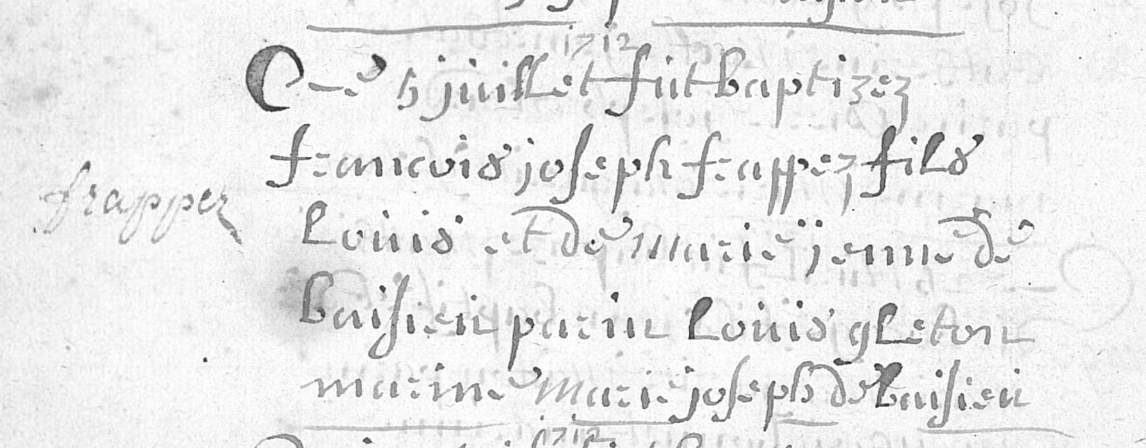 1712
Ce 5 juillet fut baptizez
francois joseph frappez fils
frappez
Louis et de marie jenne de
baisieu parin Louis gleton
marine marie joseph de baisieu
1712